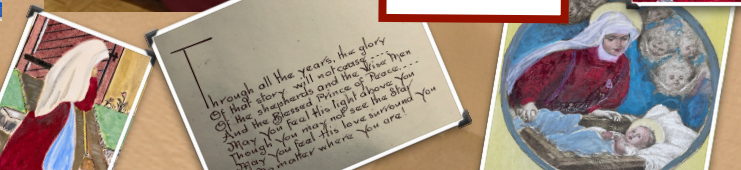 Through all the years, the glory
Of that story will not cease....
Of the shepherds and the wise Men
And the Blessed Prince of Peace....
May You feel His light above You
Though You may not see the Star
May You feel His love surround You
No matter where You are